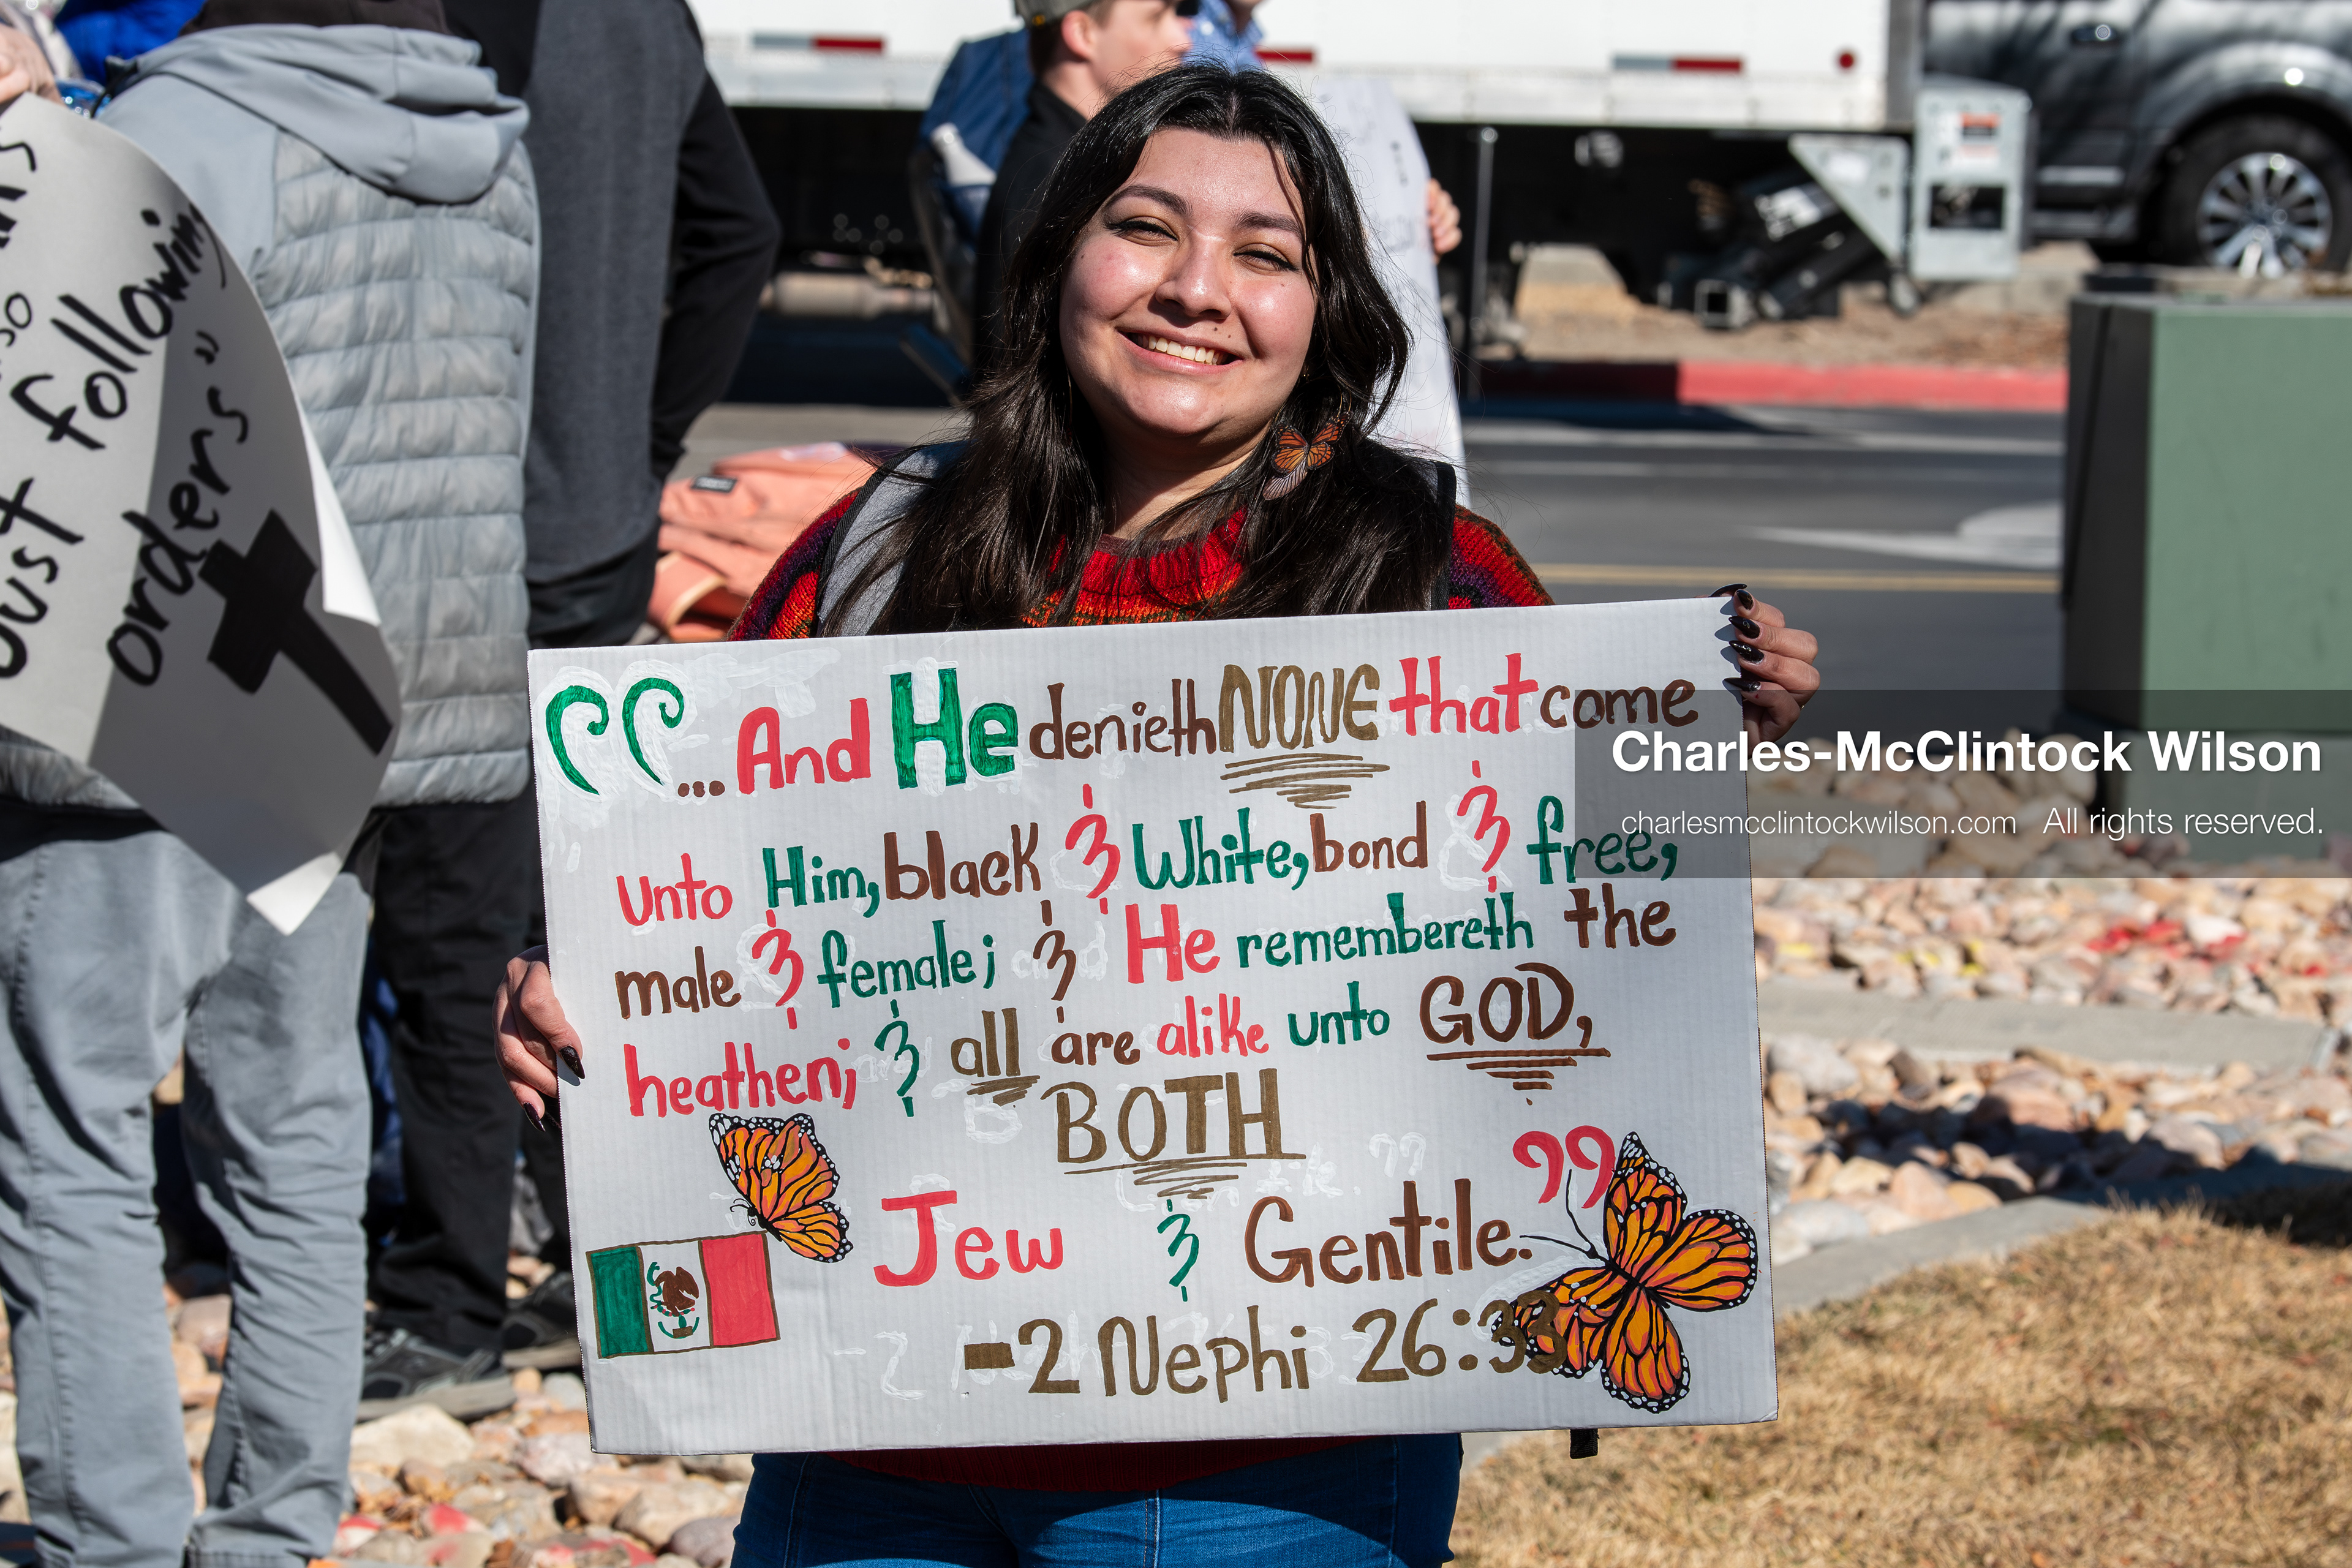 “... And He denieth NONE that come
unto Him, black & White, bond & free,
male & female; & He remembereth the
heathen; & all are alike unto GOD,
BOTH
Jew & Gentile. ”
-2 Nephi 26:33
just following
orders"
Charles-McClintock Wilson
charlesmcclintockwilson.com All rights reserved.